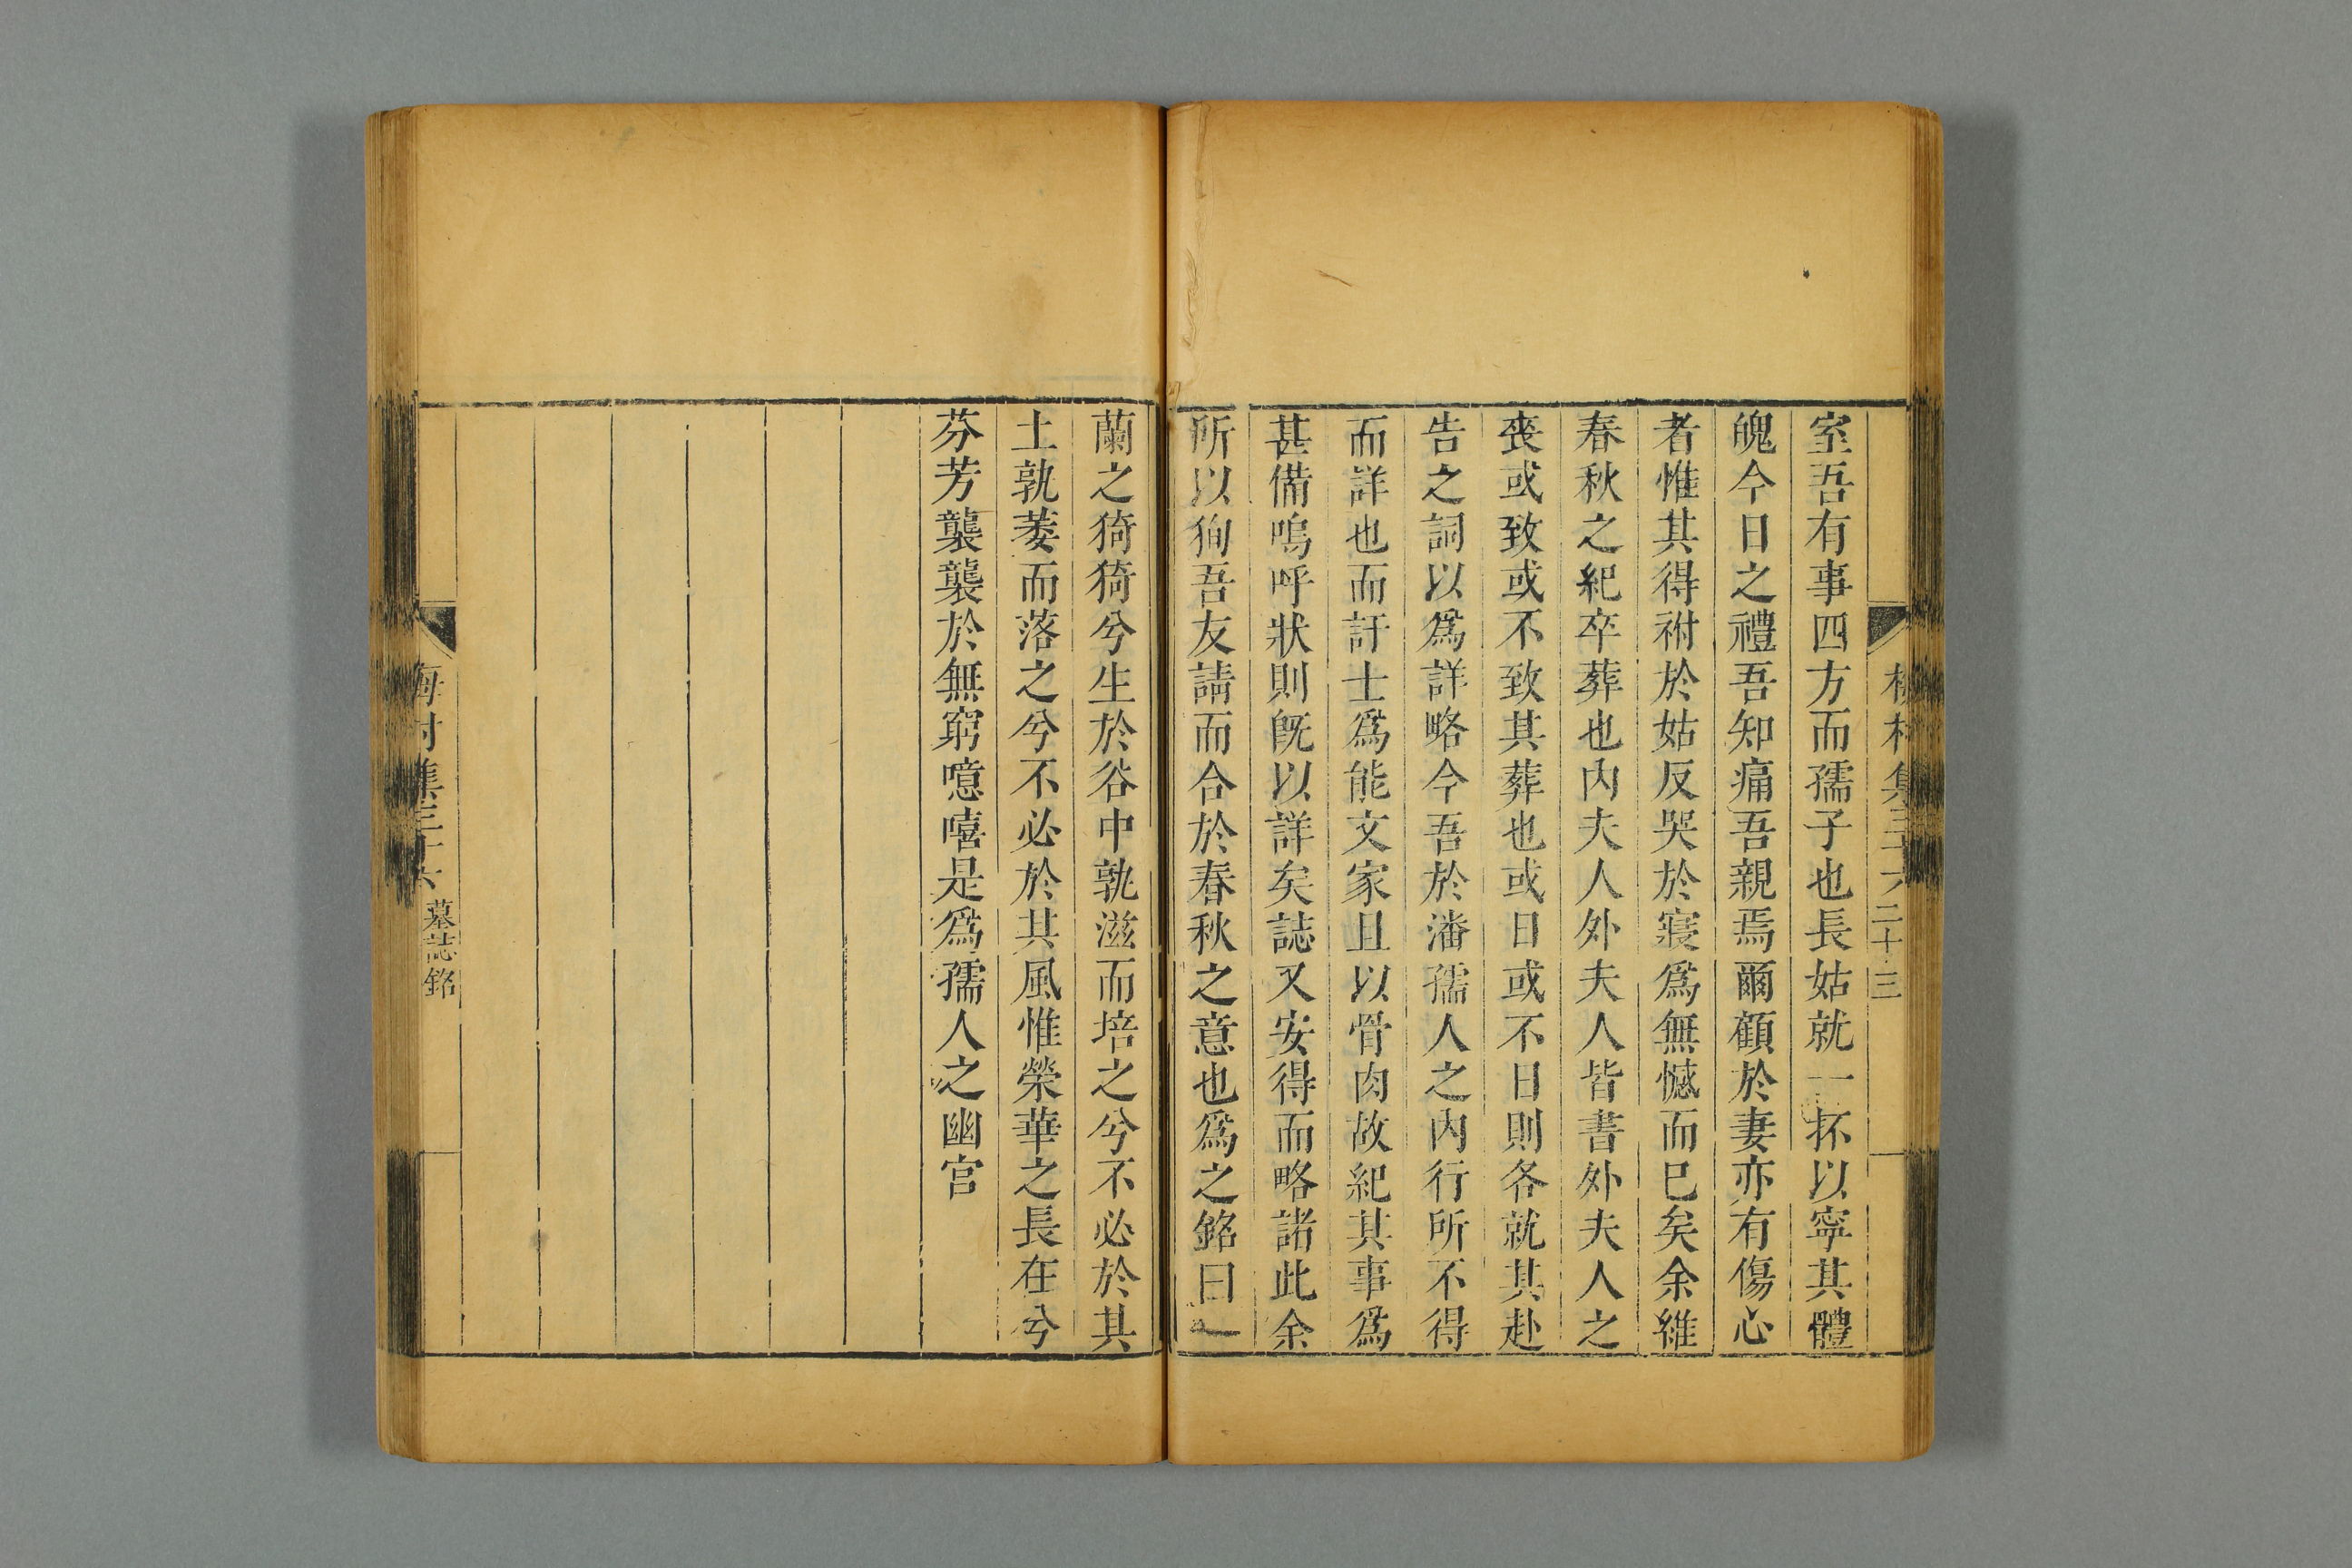 室吾有事四方而孺子也長姑就一抔以寧其體
魄今日之禮吾知痛吾親焉爾顧於妻亦有傷心
者惟其得祔於姑反哭於寢爲無憾而巳矣余維
春秋之紀卒葬也内夫人外夫人皆書外夫人之
喪或致或不致其葬也或日或不日則各就其赴
告之詞以爲詳略今吾於潘孺人之内行所不得
而詳也而訏士爲能文家且以骨肉故紀其事爲
甚備嗚呼狀則既以詳矣誌又安得而略諸此余
所以狥吾友請而合於春秋之意也爲之銘曰
蘭之猗猗兮生於谷中孰滋而培之兮不必於其
土孰萎而落之兮不必於其風惟榮華之長在兮
芬芳襲襲於無窮噫嘻是爲孺人之幽宫
梅村集三十六
二十三
梅村集三十六
墓誌銘